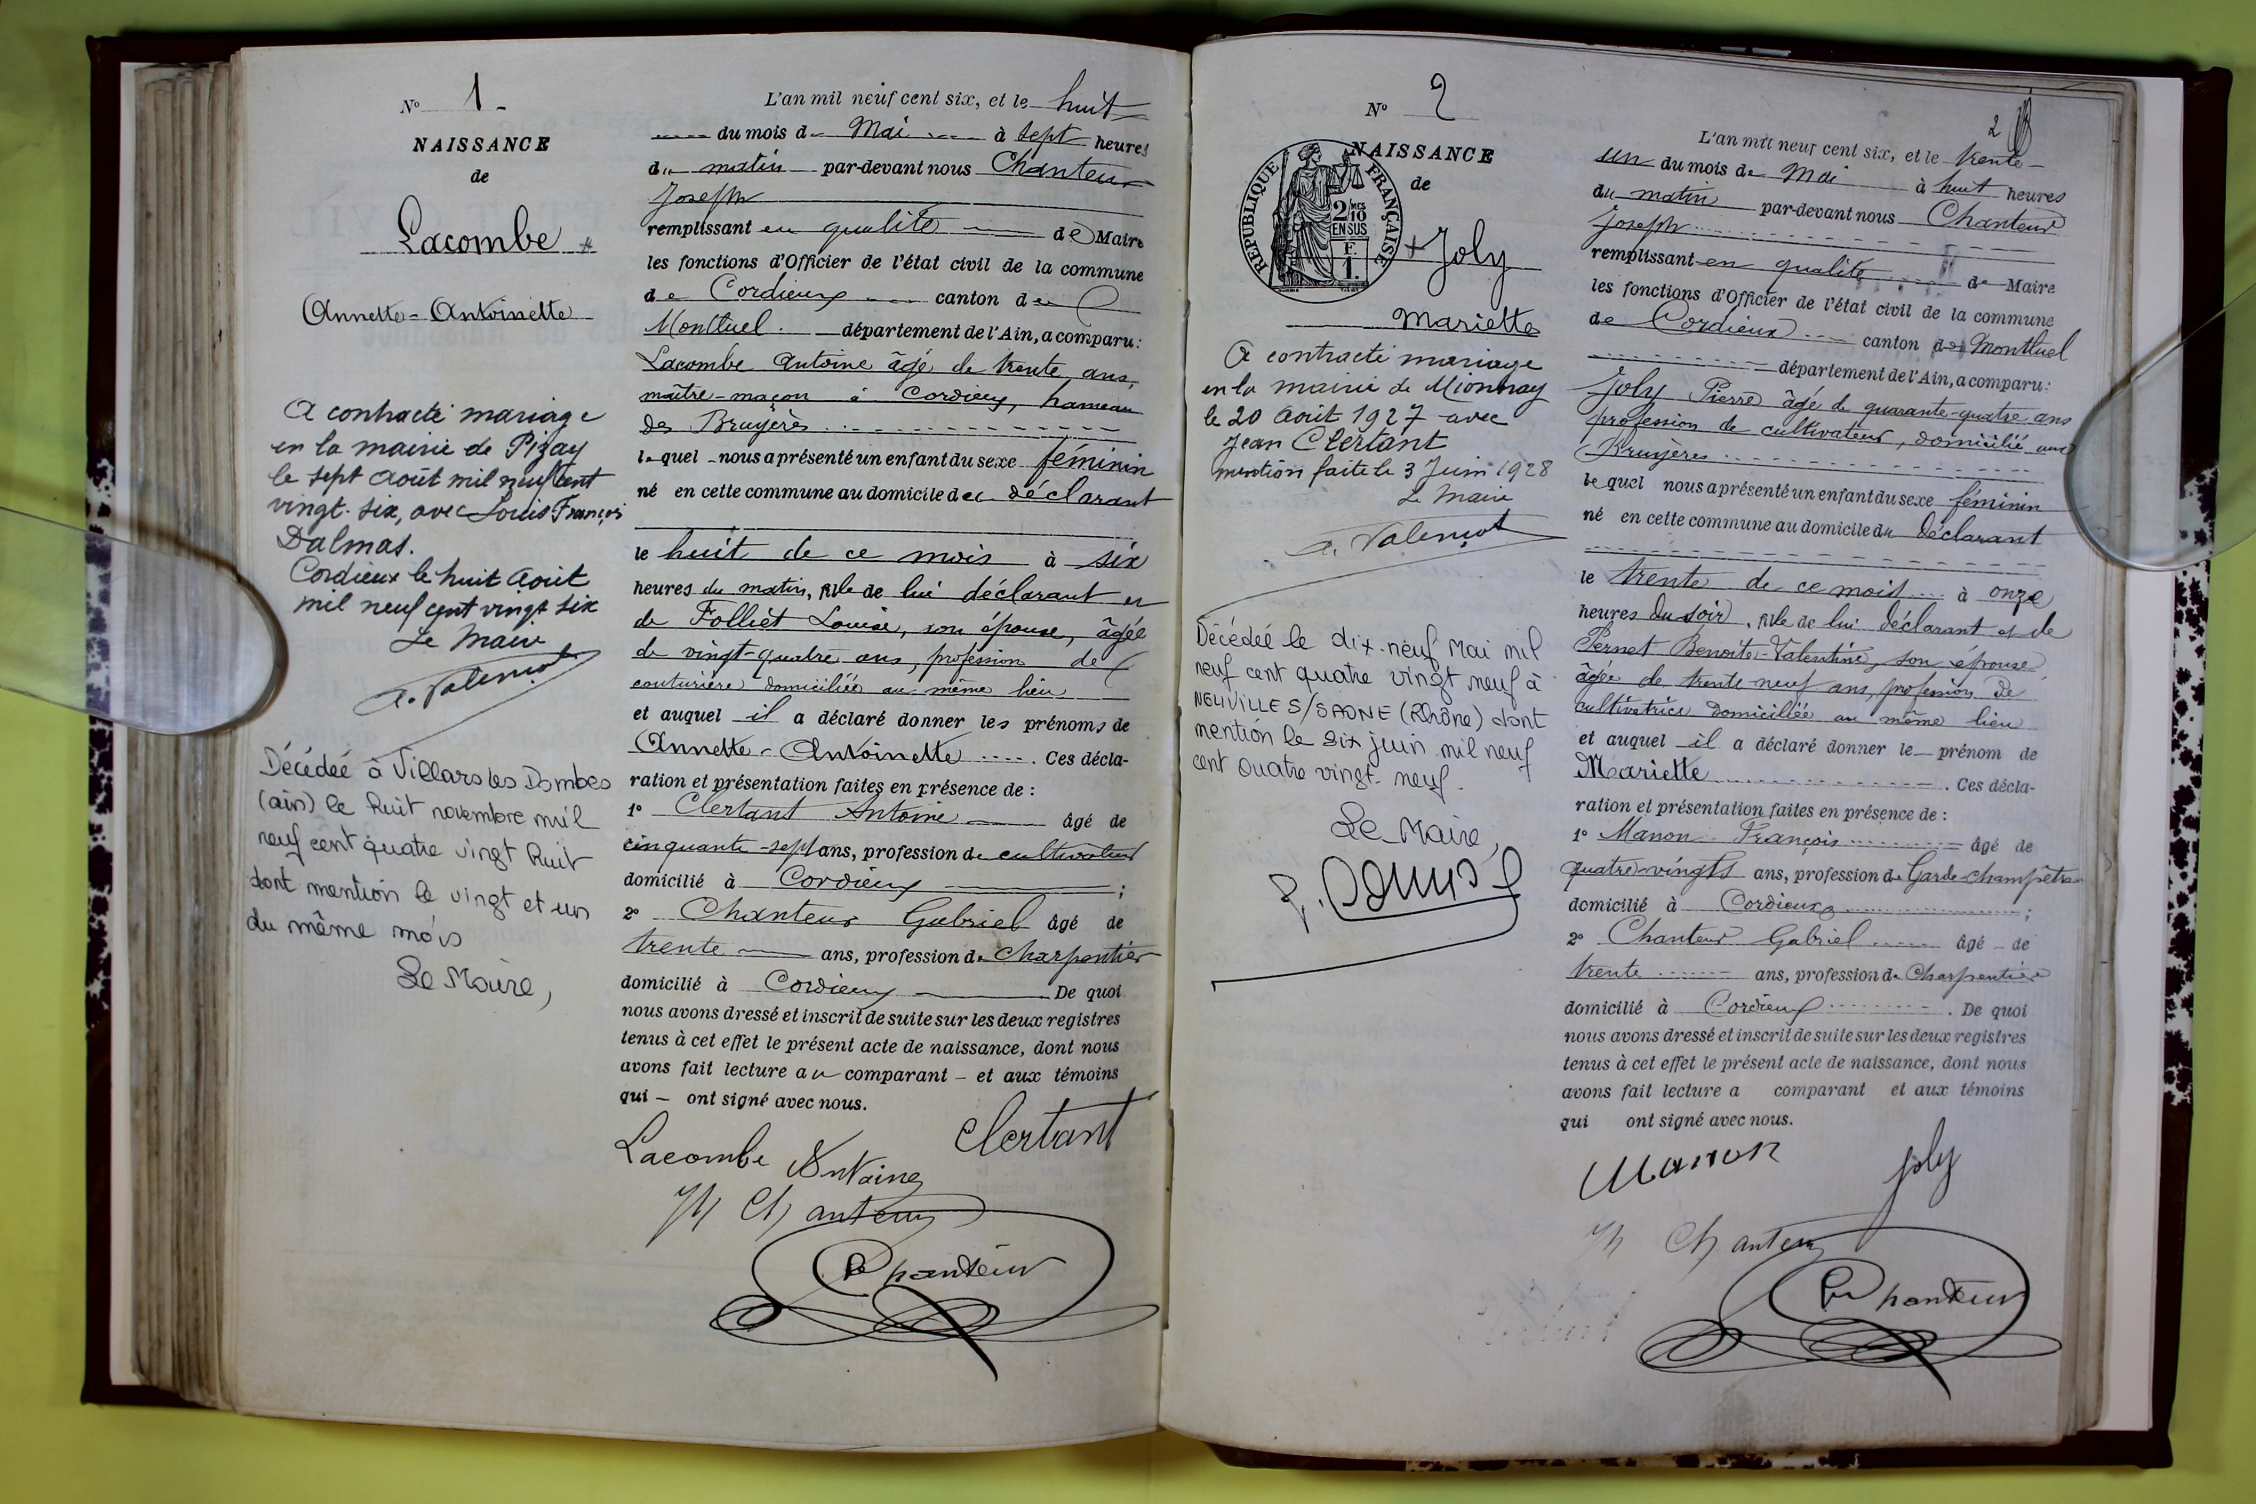 N° 1
NAISSANCE
de
Lacombe
Annette-Antoinette
A contracté mariage
en la mairie de Pizay
le sept août mil neuf cent
vingt-six, avec Louis François
Dalmas.
Cordieux le huit août
mil neuf cent vingt six
Le Maire
Décédée à Villars les Dombes
(ain) le huit novembre mil
neuf cent quatre vingt huit
dont mention le vingt et un
du même mois
Le Maire,
L'an mil neuf cent six, et le huit
du mois de Mai à sept heures
du matin par-devant nous Chanteur
Joseph
remplissant en qualité de Maire
les fonctions d'Officier de l'état civil de la commune
de Cordieux canton de
Montluel département de l'Ain, a comparu:
Lacombe Antoine âgé de trente ans,
maître-maçon à Cordieux, hameau
des Bruyères
lequel nous a présenté un enfant du sexe féminin
né en cette commune au domicile du déclarant
le huit de ce mois à six
heures du matin, fille de lui déclarant et
de Folliet Louise, son épouse, âgée
de vingt-quatre ans, profession de
couturière domiciliée au même lieu
et auquel il a déclaré donner les prénoms de
Annette-Antoinette. Ces décla-
ration et présentation faites en présence de :
1° Clertant Antoine âgé de
cinquante-sept ans, profession de cultivateur
domicilié à Cordieux ;
2° Chanteur Gabriel âgé de
trente ans, profession de charpentier
domicilié à Cordieux De quoi
nous avons dressé et inscrit de suite sur les deux registres
tenus à cet effet le présent acte de naissance, dont nous
avons fait lecture au comparant - et aux témoins
qui - ont signé avec nous.
Lacombe Antoine Clertant
Jh Chanteur
Chanteur
N° 2
NAISSANCE
de
RÉPUBLIQUE FRANÇAISE
2/10 MES
EN SUS
F.
1.
Joly
Mariette
A contracté mariage
en la mairie de Mionnay
le 20 août 1927 avec
Jean Clertant
mention faite le 3 Juin 1928
Le Maire
Décédée le dix-neuf Mai mil
neuf cent quatre vingt neuf à
NEUVILLE S/SAONE (Rhône) dont
mention le six juin mil neuf
cent quatre vingt-neuf.
Le Maire,
2
L'an mil neuf cent six, et le trente
un du mois de Mai à huit heures
du matin par-devant nous Chanteur
Joseph
remplissant en qualité de Maire
les fonctions d'Officier de l'état civil de la commune
de Cordieux canton de Montluel
département de l'Ain, a comparu:
Joly Pierre âgé de quarante-quatre ans
profession de cultivateur, domicilié aux
Bruyères
lequel nous a présenté un enfant du sexe féminin
né en cette commune au domicile du déclarant
le trente de ce mois à onze
heures du soir, fille de lui déclarant et de
Pernet Benoite-Valentine, son épouse
âgée de trente neuf ans, profession de
cultivatrice domiciliée au même lieu
et auquel il a déclaré donner le prénom de
Mariette. Ces décla-
ration et présentation faites en présence de :
1° Manon François âgé de
quatre-vingts ans, profession de Garde-champêtre
domicilié à Cordieux ;
2° Chanteur Gabriel âgé de
trente ans, profession de Charpentier
domicilié à Cordieux. De quoi
nous avons dressé et inscrit de suite sur les deux registres
tenus à cet effet le présent acte de naissance, dont nous
avons fait lecture a comparant et aux témoins
qui ont signé avec nous.
Manon Joly
Jh Chanteur
Chanteur